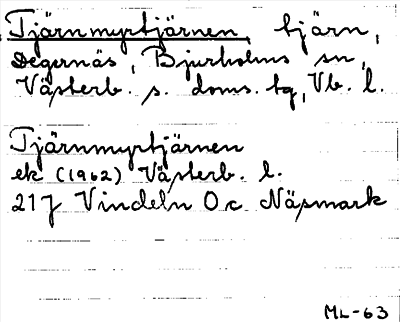 Tjärnmyrtjärnen, tjärn,
Degernäs, Bjurholms sn,
Västerb. s. doms. tg, Vb. l.
Tjärnmyrtjärnen
ek (1962) Västerb. l.
21J Vindeln 0c Näsmark
ML-63